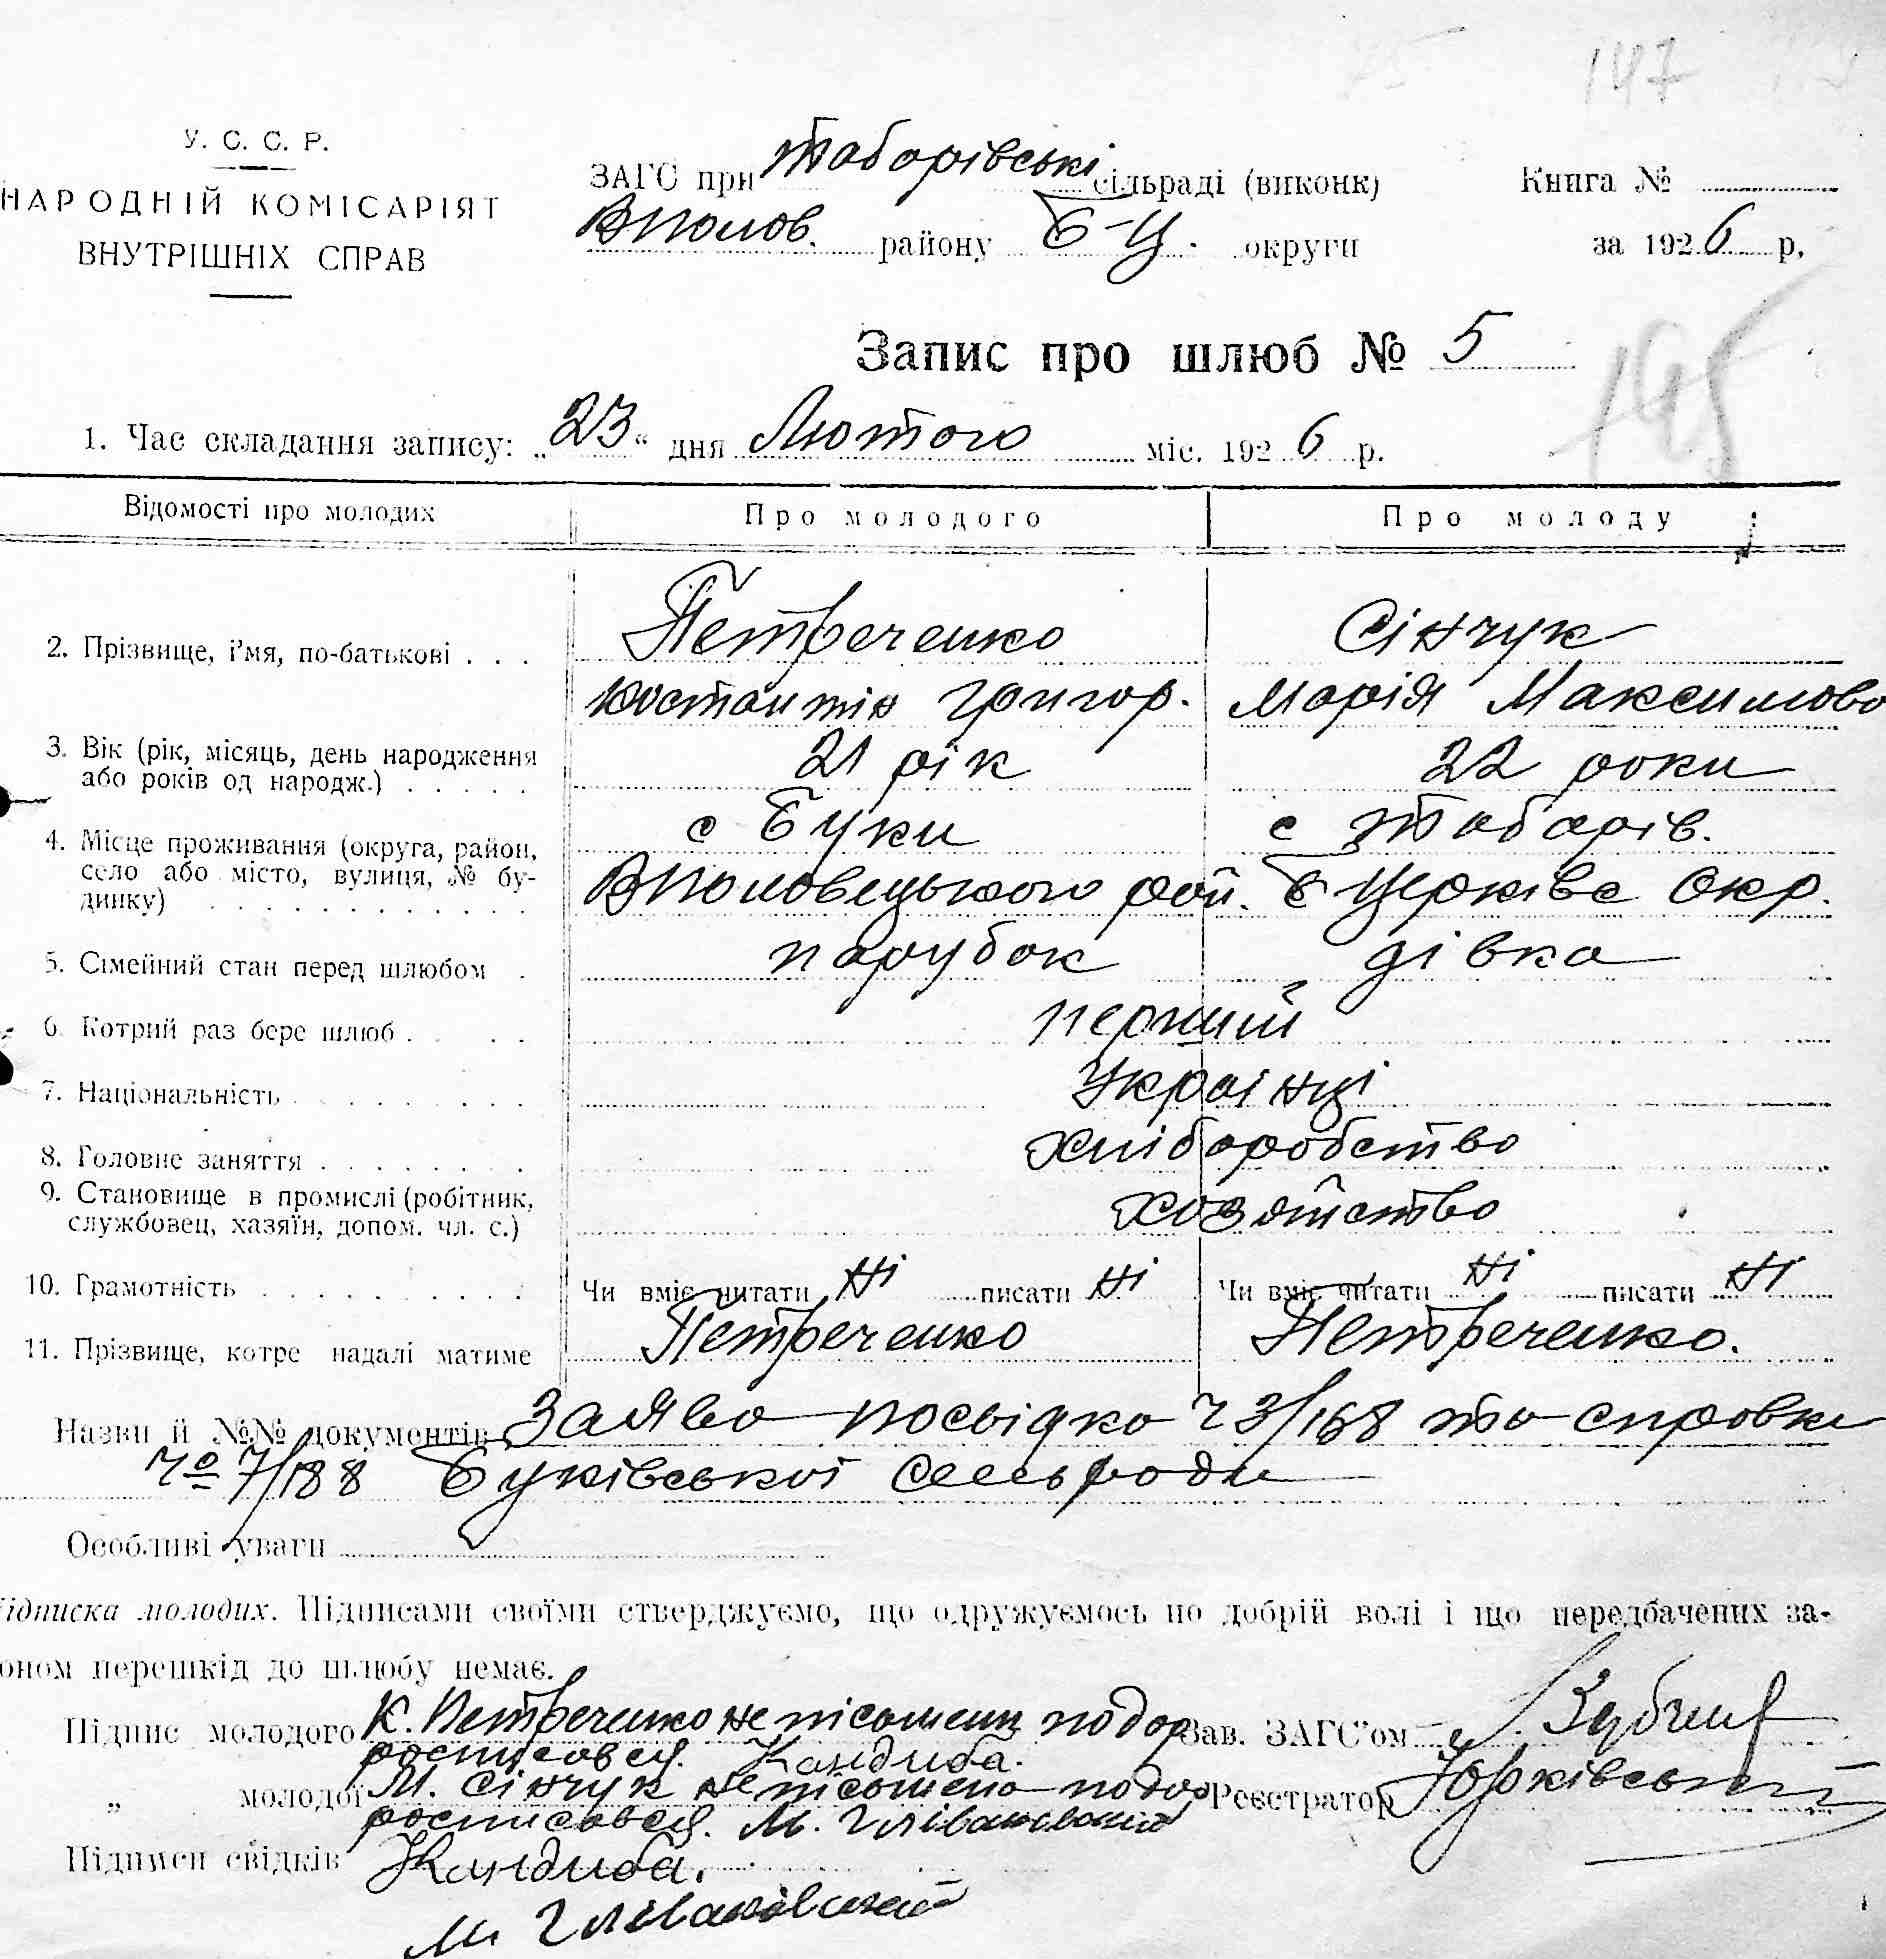 147
У. С. С. Р.
НАРОДНІЙ КОМІСАРІЯТ
ВНУТРІШНІХ СПРАВ
ЗАГС при Таборівські сільраді (виконк)
Вполов. району Б-Ц. округи
Книга №
за 1926 р,
Запис про шлюб № 5
145
1. Час складання запису: „23" дня Лютого міс. 1926 р.
Відомості про молодих Про молодого Про молоду
2. Прізвище, і'мя, по-батькові . . . Петреченко Сінчук
Костантін Григор. Марія Максимово
3. Вік (рік, місяць, день народження або років од народж.) . . . . . 21 рік 22 роки
4. Місце проживання (округа, район, село або місто, вулиця, № будинку) . . . с Буки с Таборів.
Вполовецького рой. Б Церківс Окр.
5. Сімейний стан перед шлюбом . парубок дівка
6. Котрий раз бере шлюб . . . . перший
7. Національність . . . . . . . Українці
8. Головне заняття . . . . . . . . хліборобство
9. Становище в промислі (робітник, службовец, хазяїн, допом. чл. с.) хозяйство
10. Грамотність . . . . . . . . . . Чи вміє читати Ні писати Ні Чи вміє читати Ні писати Ні
11. Прізвище, котре надалі матиме Петреченко Петреченко.
Назви й №№ документів Заява посвідка ч 3/168 та справки
ч० 7/188 Буківської Сельроди
Особливі уваги
ідписка молодих. Підписами своїми стверджуємо, що одружуємось по добрій волі і що передбачених за-
оном перешкід до шлюбу немає.
Підпис молодого К. Петреченко не пісоменц подор
росписовся. Кандиба.
Зав. ЗАГС'ом
„ молодої М. Сінчук не пісомено подор
росписовся. М.
Реєстратор Юрківський
Підписи свідків Кандиба.
М.